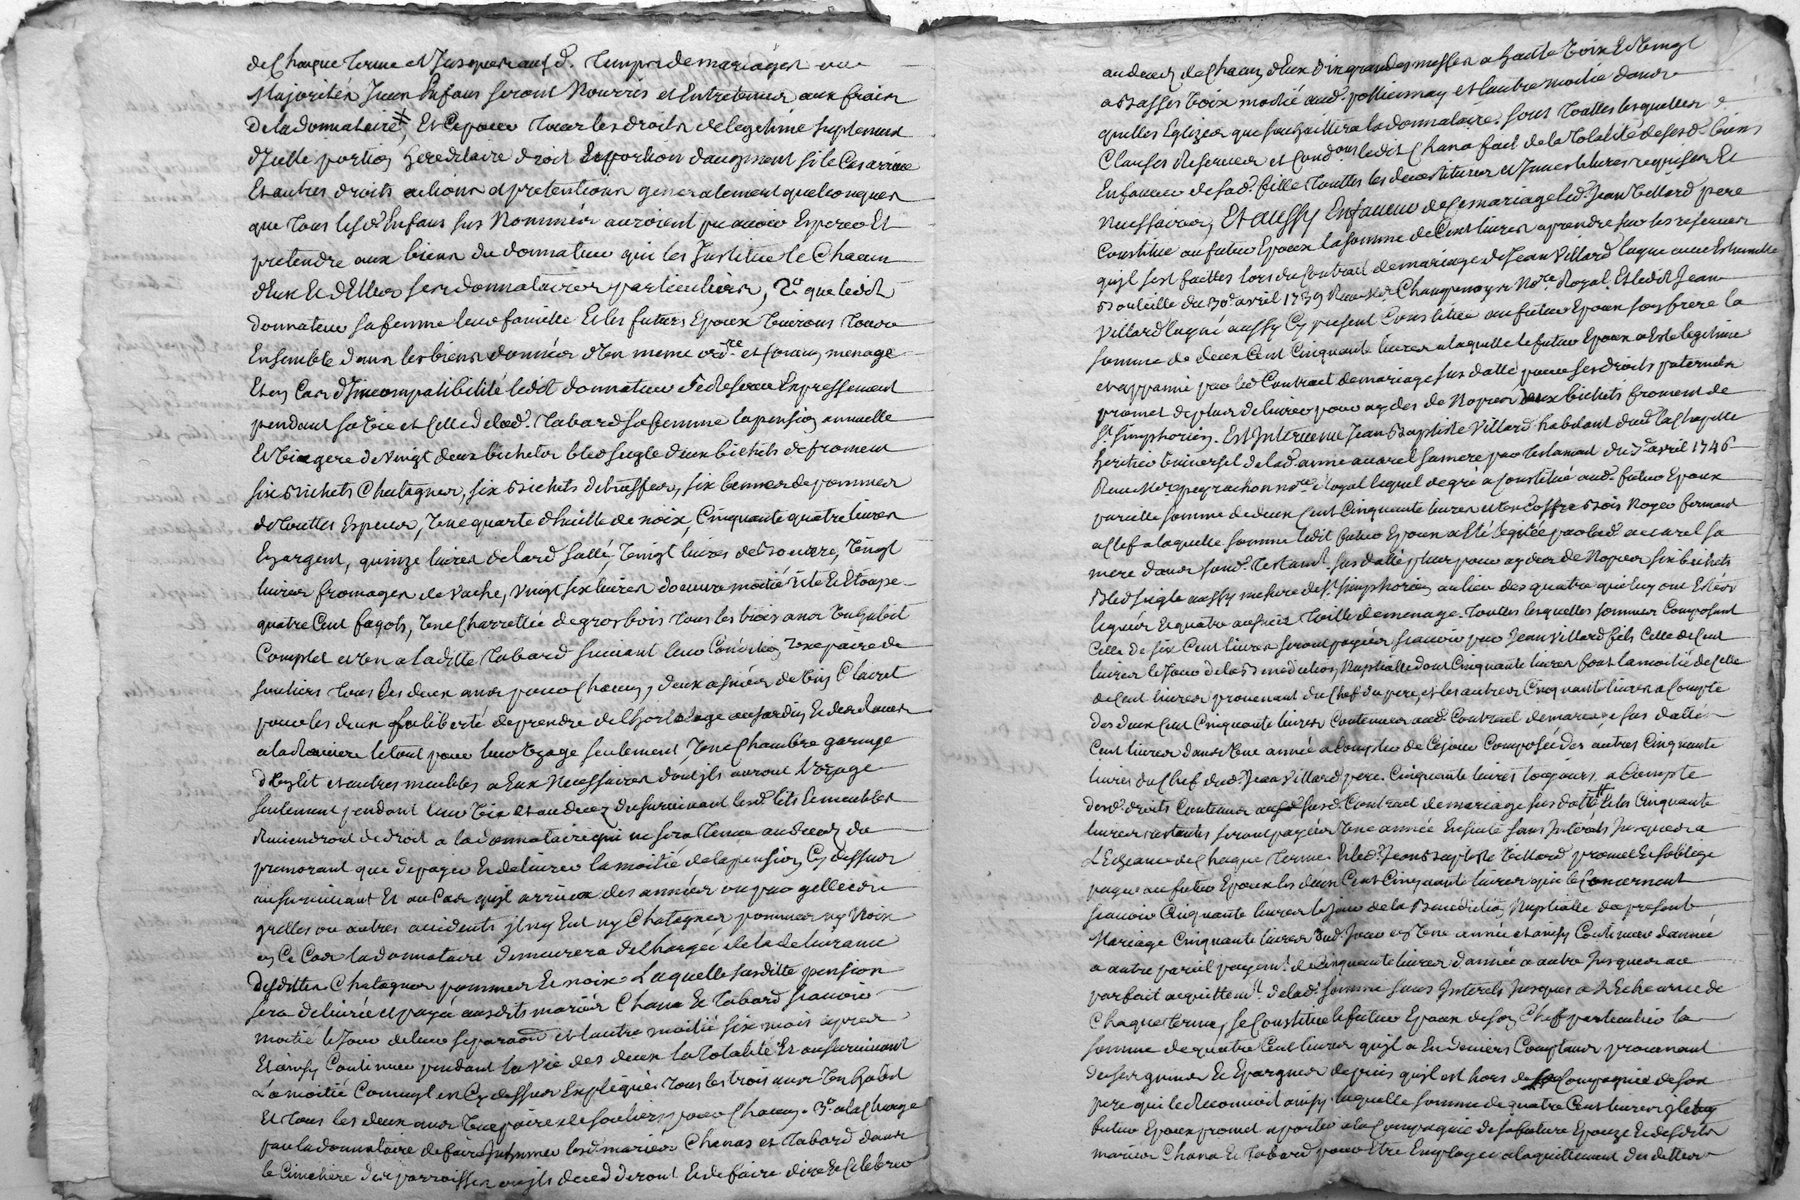 de chaque terme et jusques auxd. temps de mariages ou
majorités iceux enfans seront nourris et entretenus aux frais
de la donnataire, et ce pour tous les droits de legitime suplement
d'icelle portion hereditaire droit et portion d'augment si le cas arrive
et autres droits actions et pretentions generalement quelconques
que tous lesd. enfans sus nommés auroient pu avoir esperer et
pretendre aux biens du donnateur qui les institue le chacun
d'eux et d'elles ses donnataires particuliers, 2o que ledit
donnateur sa femme leur famille et les futurs epoux vivront tous
ensemble dans les biens donnés d'un meme ordre et commun menage
et en cas d'incompatibilité ledit donnateur se reserve expressement
pendant sa vie et celle de lad. Tabard sa femme la pension annuelle
et viagere de vingt deux bichets bled seigle deux bichets de froment
six bichets chatagnes, six bichets de truffes, six bennes de pommes
de touttes especes, une quarte d'huille de noix, cinquante quatre livres
en argent, quinze livres de lard sallé, vingt livres de beurre, vingt
livres fromages de vache, vingt six livres d'oeuvre moitié rite et etoupe
quatre cent fagots, une charrettée de gros bois tous les trois ans un habit
complet et un a laditte Tabard suivant leur condition, une paire de
souliers tous les deux ans pour chacun, deux asnées de vin clairet
pour les deux la liberté de prendre de l'hortolage au jardin et des raves
a la raviere le tout pour leur usage seulement, une chambre garnie
d'un lit et autres meubles a eux necessaires dont ils auront l'usage
seulement pendant leur vie et au decez du survivant lesd. lits et meubles
reviendront de droit a la donnataire qui ne sera tenue au decez du
premourant que de payer et delivrer la moitié de la pension cy dessus
au survivant et au cas qu'il arrivat des années ou par gellée ou
grelles ou autres accidents il n'y eut ny chatagnes pommes ny noix
en ce cas la donnataire demeurera dechargée de la delivrance
desdittes chatagnes pommes et noix laquelle susditte pension
sera delivrée et payée auxdits mariés Chana et Tabard scavoir
moitié le jour de leur separaon et l'autre moitié six mois apres
et ainsy continuer pendant la vie des deux la totalité et au survivant
la moitié comm'il est cy dessus expliqué tous les trois ans un habit
et tous les deux ans une paire de souliers pour chacun. 3o a la charge
par la donnataire de faire inhumer lesd. mariés Chanas et Tabard dans
le cimetiere des parroisses ou ils decederont et de faire dire et celebrer
au decez de chacun d'eux dix grandes messes a haute voix et vingt
a basses voix moitié aud. Pollionnay et l'autre moitié dans
quelles eglizes que souhaittera la donnataire. sous touttes lesquelles
clauses reserves et condons ledit Chana fait de la totalité de sesd. biens
en faveur de sad. fille touttes les devestitures et investitures requises et
necessaires, et aussy en faveur de ce mariage led. Jean Villard pere
constitue au futur epoux la somme de cent livres a prendre sur les reserves
qu'il s'est faittes lors du contract de mariage de Jean Villard laque avec Estiennette
Bouteille du 30e avril 1739 Receu Me Changenoyse Nore Royal. Et ledit Jean
Villard layné aussy cy present constitue au futur epoux son frere la
somme de deux cent cinquante livres a laquelle le futur epoux a esté legitimé
et appanné par led. contract de mariage sus datté pour ses droits paternels
promet de plus delivrer pour aydes de nopces deux bichets froment de
St simphorien. Est intervenu Jean Baptiste Villard habitant dud. la Chapelle
heritier universel de lad. anne accarel sa mere par testament du 7e avril 1746
Receu Me peyrachon nore Royal lequel de gré a constitué aud. futur epoux
pareille somme de deux cent cinquante livres et un coffre bois noyer fermant
a clef a laquelle somme ledit futur epoux a eté leguée par lad. accarel sa
mere dans sond. testamt. sus datté plus pour aydes de nopces six bichets
bled seigle aussy mesure de St. simphorien au lieu des quatre qui luy ont esté
legués et quatre assiettes vaisselle de menage. touttes lesquelles sommes composent
celle de six cent livres seront payées scavoir par Jean Villard fils celle de cent
livres le jour de la benediction nuptialle dont cinquante livres font la moitié de celle
de cent livres provenant du chef du pere, et les autres cinquante livres a compte
des deux cent cinquante livres contenues aud. contract de mariage sus datté
cent livres dans une année a compter de ce jour composée des autres cinquante
livres du chef dud. Jean Villard pere. cinquante livres toujours a compte
desd. droits contenus au susd. contract de mariage sus datté et les cinquante
livres restantes seront payées une année ensuite sans interets jusques a
l'echeance de chaque terme. et led. Jean Baptiste Villard promet et s'oblige
payer au futur epoux les deux cent cinquante livres qui le concernent
scavoir cinquante livres le jour de la benediction nuptialle du present
mariage cinquante livres dud. jour en une année et ainsy continuer d'année
a autre pareil payemt. de cinquante livres d'année a autre jusques au
parfait acquittemt. de lad. somme sans interets jusques a l'echeance de
chaque terme, se constitue le futur epoux de son chef particulier la
somme de quatre cent livres qu'il a en deniers comptans provenant
de ses gaines et epargnes depuis qu'il est hors de la compagnie de son
pere qui le reconnoit ainsy laquelle somme de quatre cent livres
futur epoux promet apporter a la compagnie de sa future epouze et desdits
mariés Chana et Tabard pour etre employée a l'aquittement des dettes